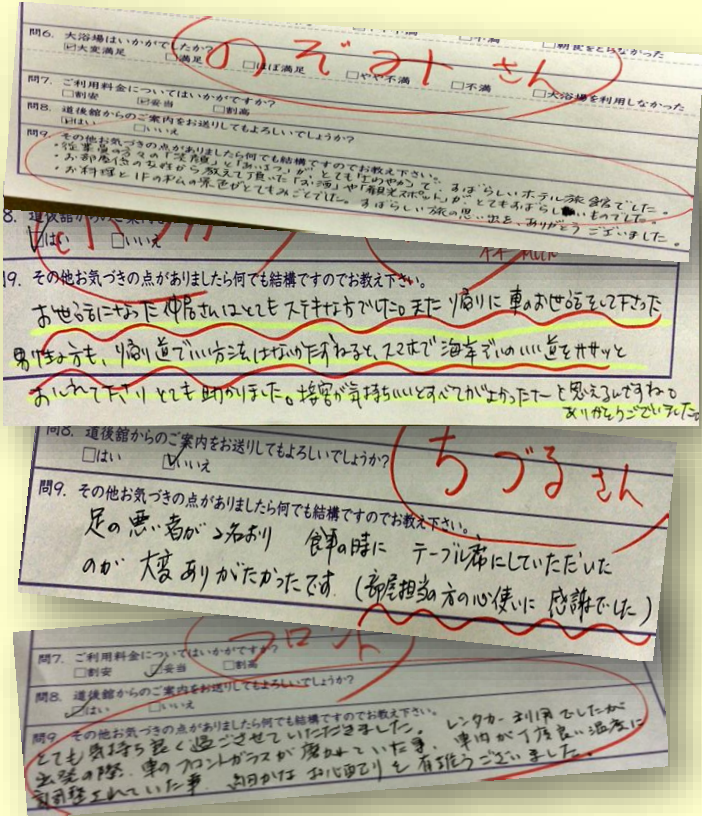 問6. 大浴場はいかがでしたか?
☑大変満足 □満足 □ほぼ満足 □やや不満 □不満 □大浴場を利用しなかった
のぞみさん
問7. ご利用料金についてはいかがですか?
□割安 ☑妥当 □割高
問8. 道後館からのご案内をお送りしてもよろしいでしょうか?
☑はい □いいえ
問9. その他お気づきの点がありましたら何でも結構ですのでお教え下さい。
・従業員の方々の「笑顔」と「あいさつ」が、とても「さわやか」で、すばらしいホテル旅館でした。
・お部屋係の方から教えて頂いた「お酒」や「観光スポット」が、とてもすばらしいものでした。
・お料理と1Fの 景色がとてもみごとでした。すばらしい旅の思い出を、ありがとうございました。
8. 道後館からのご案内を
☑はい □いいえ
9. その他お気づきの点がありましたら何でも結構ですのでお教え下さい。
お世話になった仲居さんはとてもステキな方でした。また帰りに車のお世話をして下さった
男性の方も、帰り道でいい方法はないかたずねると、スマホで海岸ぞいのいい道をササッと
おしえて下さりとても助かりました。接客が気持ちいいとすべてがよかったナーと思えるんですね。
ありがとうございました。
問8. 道後館からのご案内をお送りしてもよろしいでしょうか?
□はい ☑いいえ
ちづるさん
問9. その他お気づきの点がありましたら何でも結構ですのでお教え下さい。
足の悪い者が2名おり 食事の時に テーブル席にしていただいた
のが 大変ありがたかったです (部屋担当の方の心使いに 感謝でした)
フロント
問7. ご利用料金についてはいかがですか?
□割安 ☑妥当 □割高
問8. 道後館からのご案内をお送りしてもよろしいでしょうか?
☑はい □いいえ
問9. その他お気づきの点がありましたら何でも結構ですのでお教え下さい。
とても気持ち良く過ごさせていただきました。レンタカー利用でしたが
出発の際、車のフロントガラスが磨かれていた事、車内が丁度良い温度に
調整されていた事、 お心配りを有難うございました。